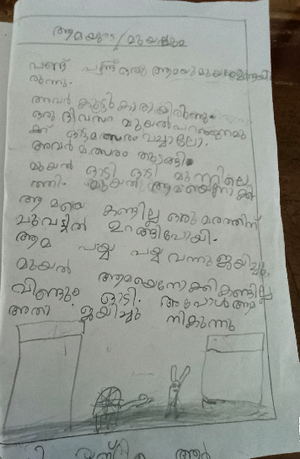 ആമയും/മുയലും
പണ്ട് പണ്ട് ഒരു ആമയും മുയലുമുണ്ടായി
രുന്നു.
അവർ കൂട്ടുകാരായിരുന്നു.
ഒരു ദിവസം മുയൽ പറഞ്ഞു നമു
ക്ക് ഓട്ടമത്സരം വച്ചാലോ.
അവർ മത്സരം തുടങ്ങി.
മുയൽ ഓടി ഓടി മുന്നിലെ
ത്തി. മുയൽ ആമയെനോക്കി
ആമയെ കണ്ടില്ല ഒരു മരത്തിന്
ചുവട്ടിൽ ഉറങ്ങിപോയി.
ആമ പയ്യ പയ്യ വന്നു ജയിച്ചു.
മുയൽ ആമയെനോക്കി കണ്ടില്ല
വീണ്ടും ഓടി. അപോൾ ആമ
അതാ ജയിച്ചു നികുന്നു